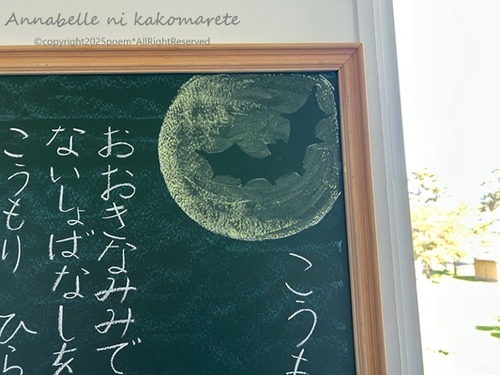 Annabelle ni kakomarete
©copyright2025poem*AllRightReserved
こうも
おおきなみみで
ないしょばなしを
こうもり ひら